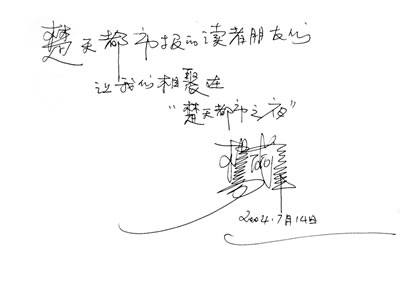 楚天都市报的读者朋友们
让我们相聚在
“楚天都市之夜”
2004.7月14日